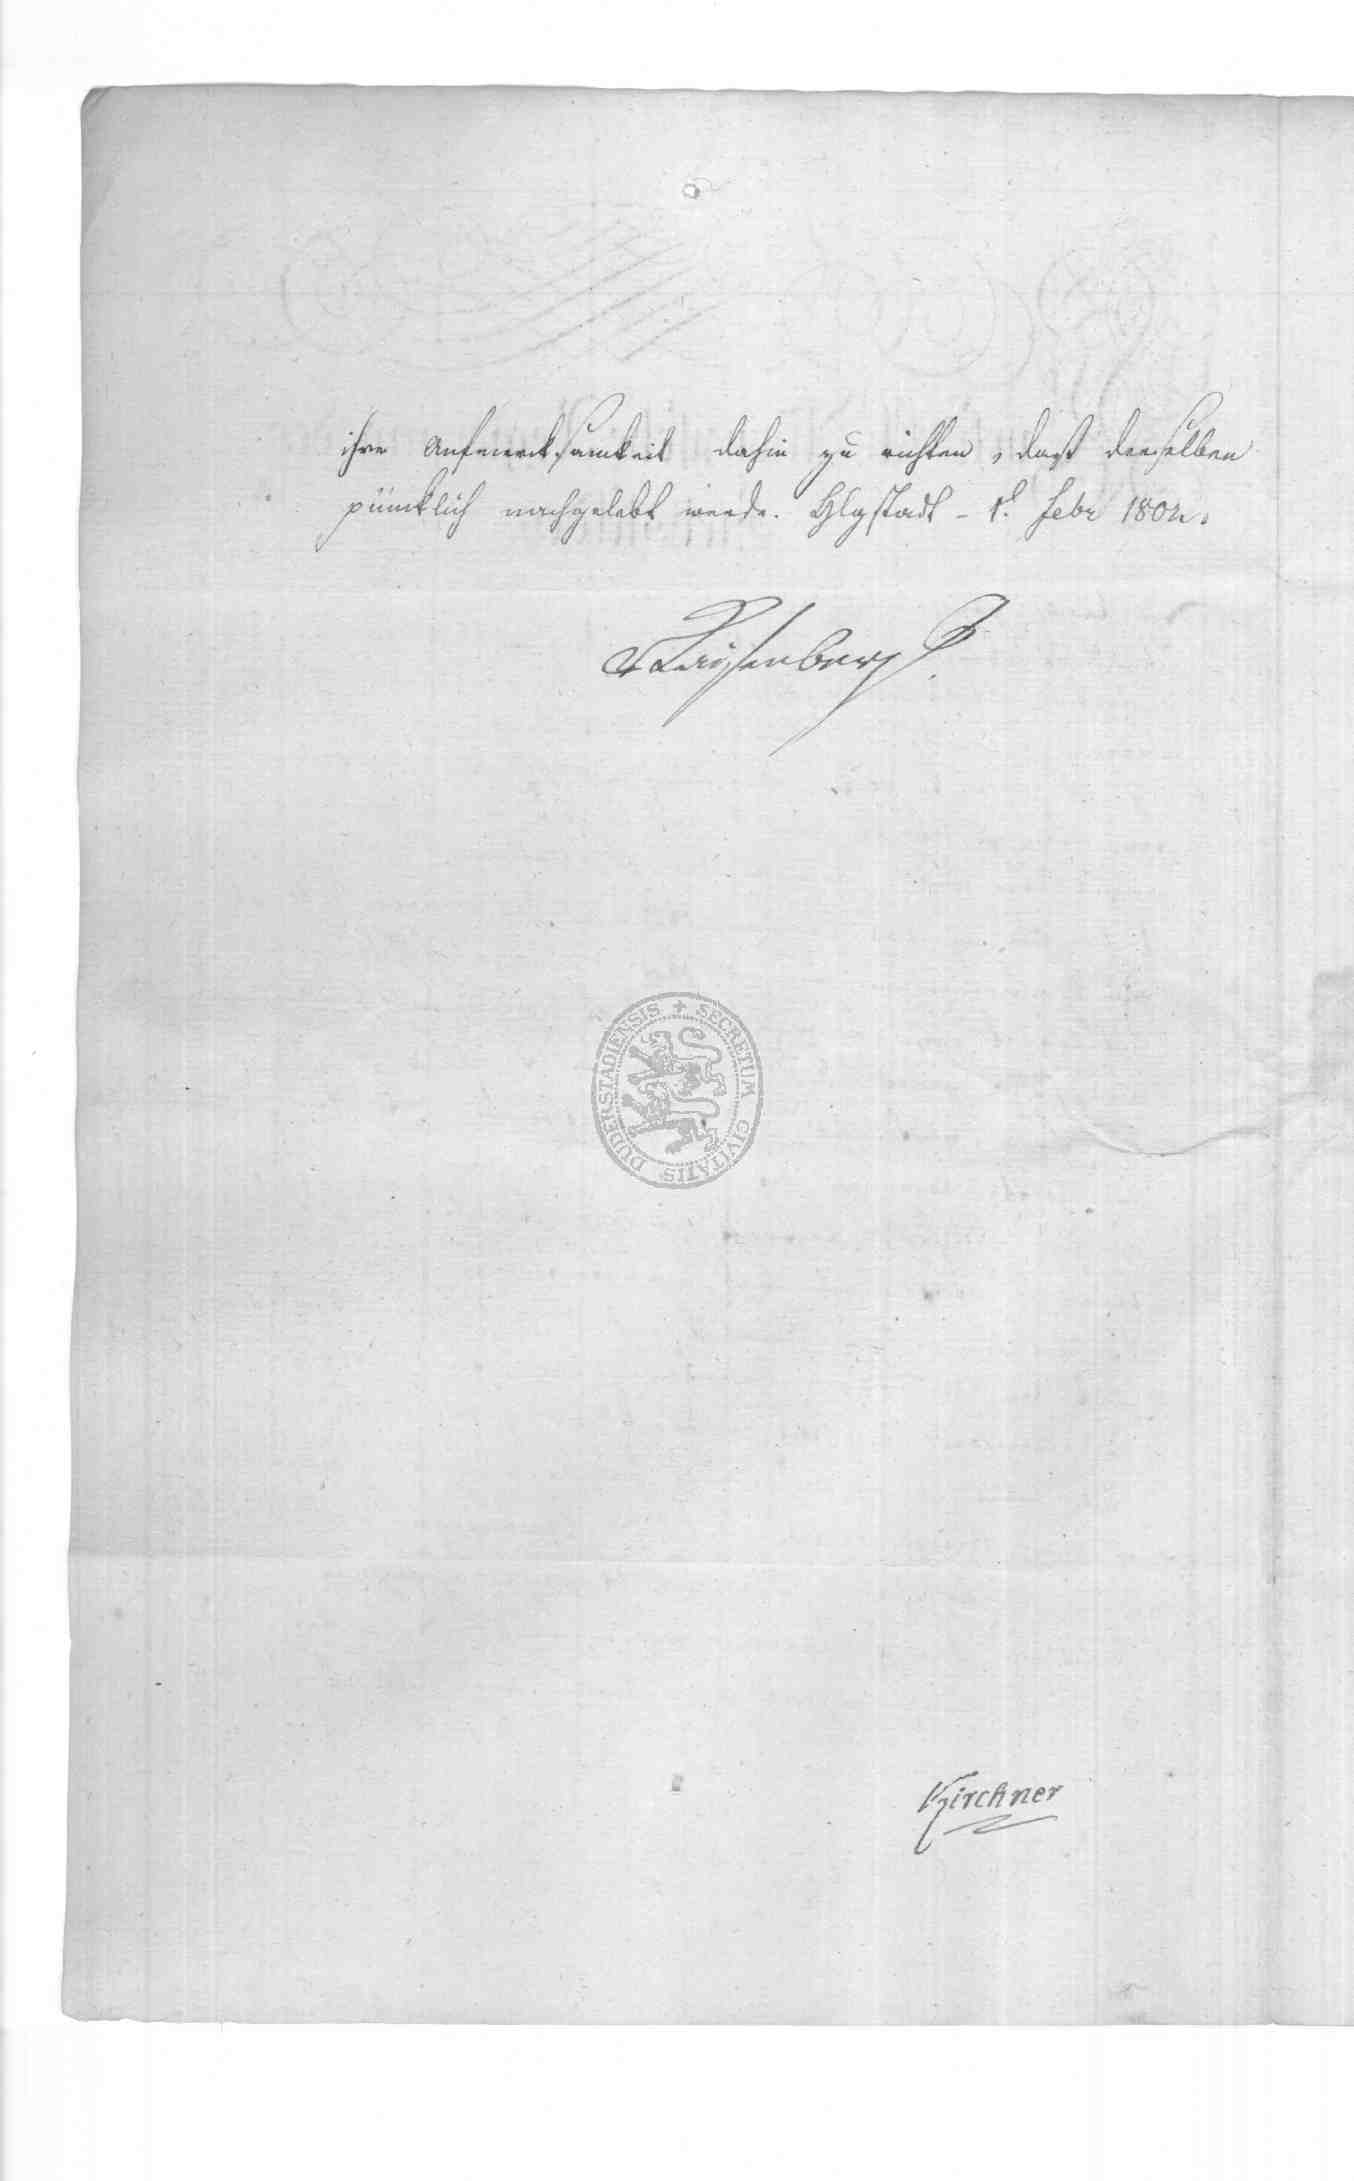 ihre Aufmerksamkeit dahin zu richten, daß derselben
pünktlich nachgelebt werde. Hlgstadt - 1t. Febr 1802.
SECRETUM CIVITATIS DUDERSTADIENSIS
Kirchner